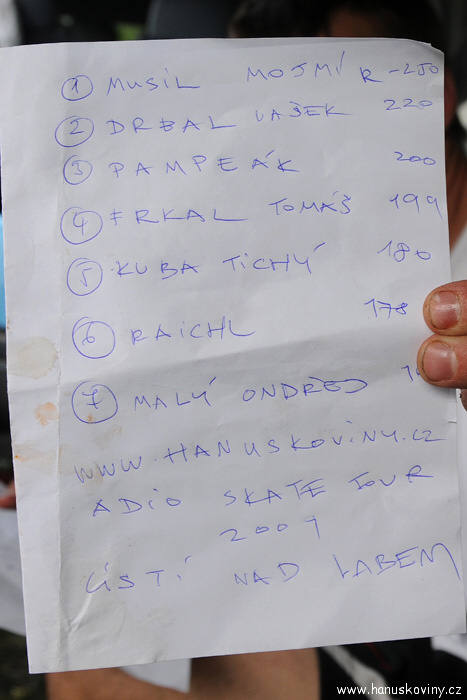 1 MUSIL MOJMÍR - 250
2 DRBAL VAŠEK 220
3 PAMPEÁK 200
4 FRKAL TOMÁŠ 199
5 KUBA TICHÝ 180
6 RAICHL 178
7 MALÝ ONDŘEJ
WWW.HANUSKOVINY.CZ
ADIO SKATE TOUR
2009
ÚSTÍ NAD LABEM
www.hanuskoviny.cz